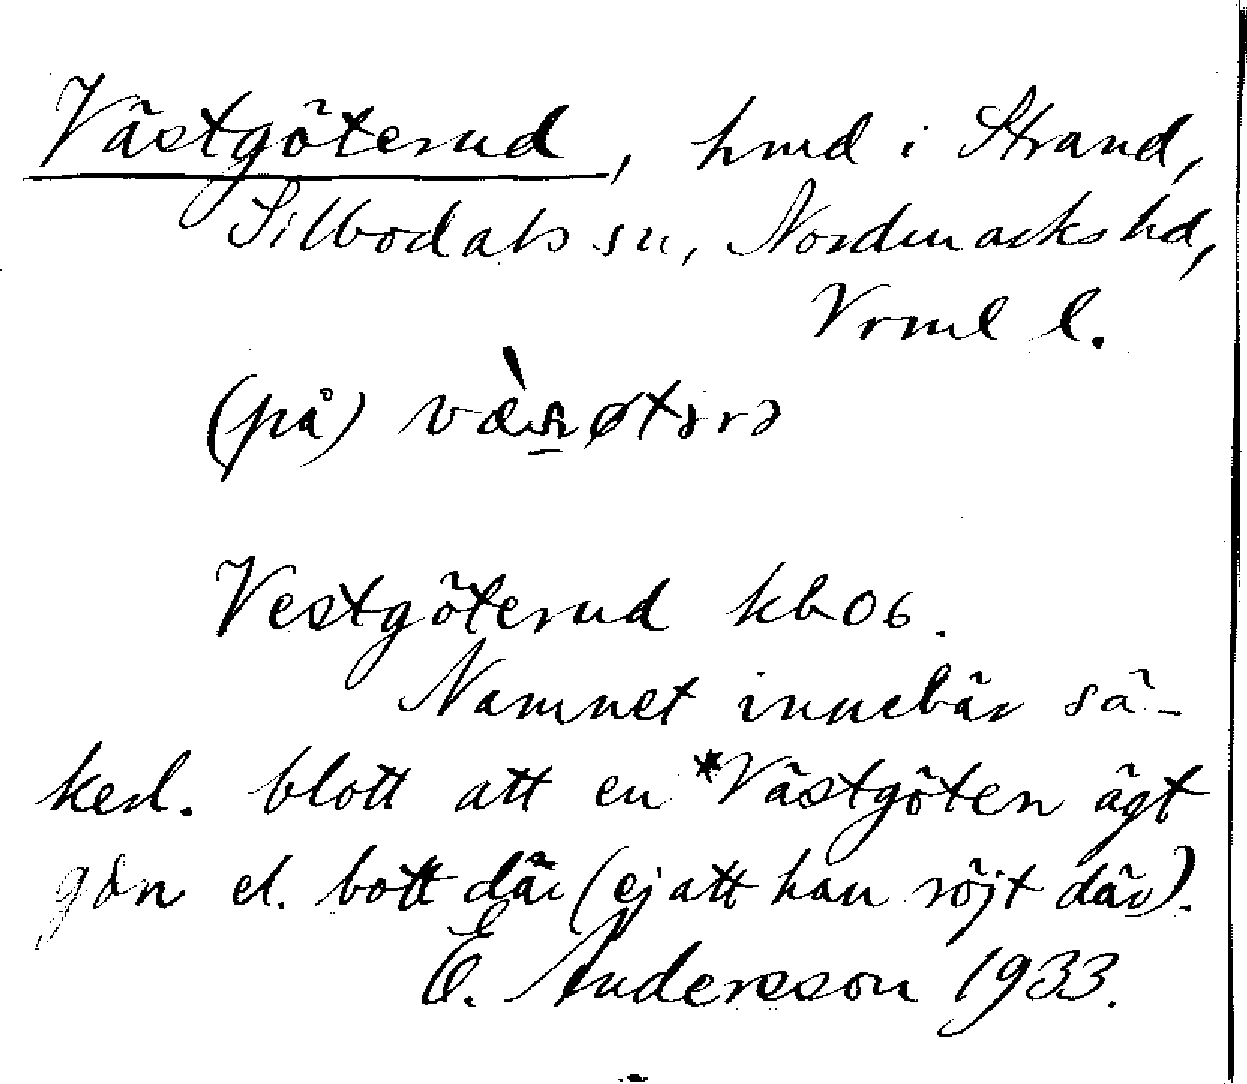 Västgöterud, hmd i Strand,
Silbodals sn, Nordmarks hd,
Vrml l.
(på)
Vestgöterud kb 06.
Namnet innebär sä-
kerl. blott att en *Västgöten ägt
gdn el. bott där (ej att han röjt där).
E. Andersson 1933.